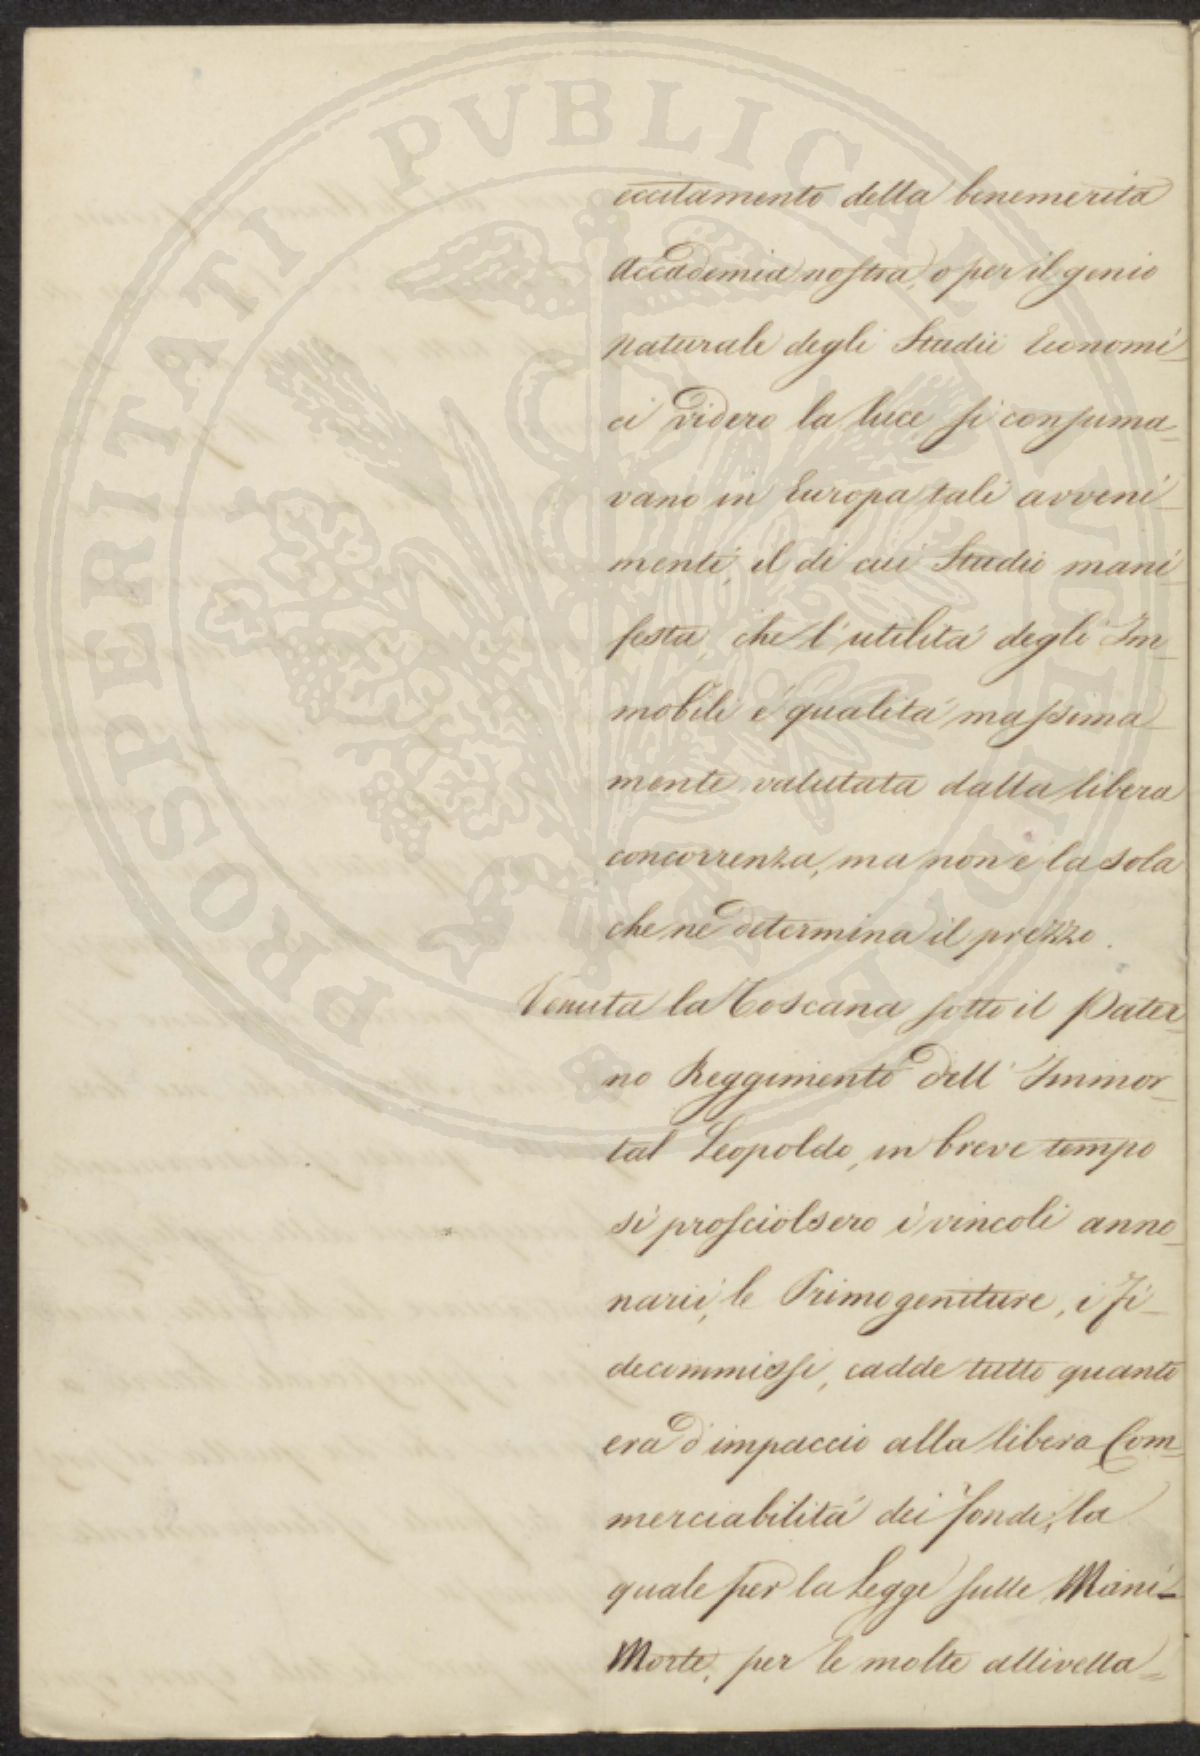 eccitamento della benemerita
Accademia nostra, o per il genio
naturale degli Studii Economi-
ci videro la luce si consuma-
vano in Europa tali avveni-
menti, il di cui Studio mani-
festa, che l'utilità degli Im-
mobili è qualità massima-
mente valutata dalla libera
concorrenza, ma non è la sola
che ne determina il prezzo.
Venuta la Toscana sotto il Pater-
no Reggimento dell'Immor-
tal Leopoldo, in breve tempo
si prosciolsero i vincoli anno-
narii, le Primogeniture, i Fi-
decommissi, cadde tutto quanto
era d'impaccio alla libera Com-
merciabilità dei fondi, la
quale per la Legge sulle Mani-
Morte, per le molte allivella-
PROSPERITATI PVBLICAE AVGENDAE